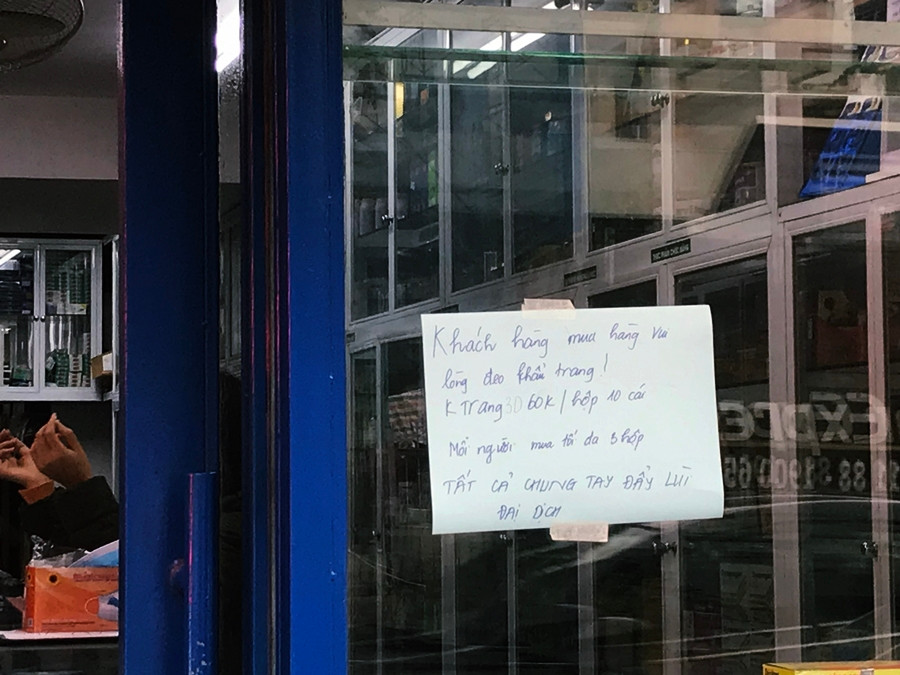 THỰC PHẨM CHỨC NĂNG
Khách hàng mua hàng vui
lòng đeo khẩu trang !
K Trang 3D 60K / hộp 10 cái
Mỗi người mua tối đa 5 hộp
TẤT CẢ CHUNG TAY ĐẨY LÙI
ĐẠI DỊCH